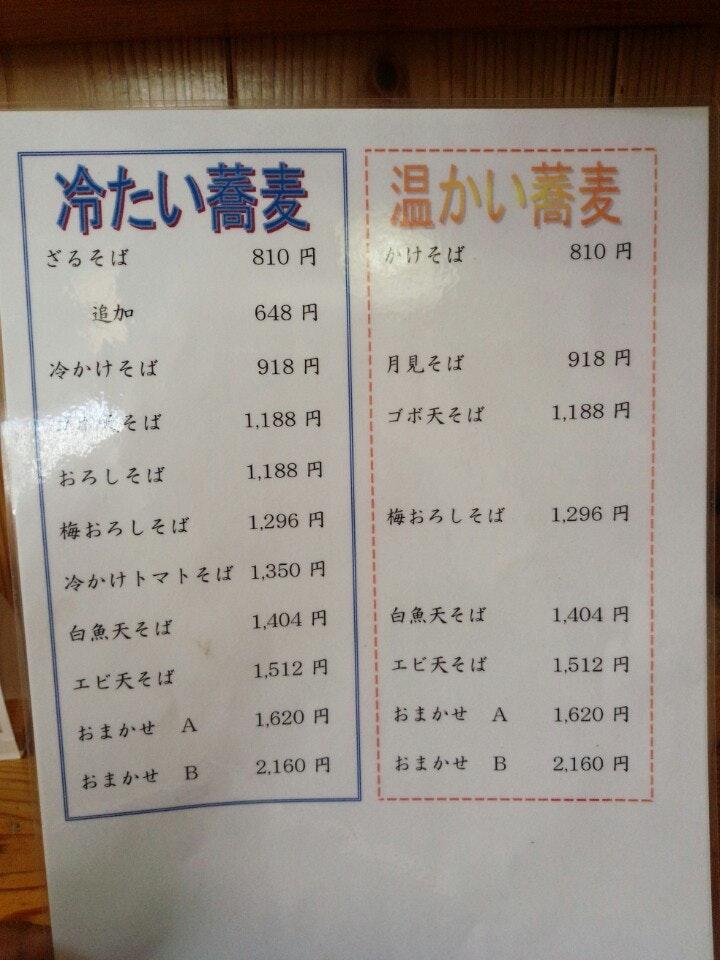 冷たい蕎麦
ざるそば 810 円
追加 648 円
冷かけそば 918 円
ゴボ天そば 1,188 円
おろしそば 1,188 円
梅おろしそば 1,296 円
冷かけトマトそば 1,350 円
白魚天そば 1,404 円
エビ天そば 1,512 円
おまかせ A 1,620 円
おまかせ B 2,160 円
温かい蕎麦
かけそば 810 円
月見そば 918 円
ゴボ天そば 1,188 円
梅おろしそば 1,296 円
白魚天そば 1,404 円
エビ天そば 1,512 円
おまかせ A 1,620 円
おまかせ B 2,160 円